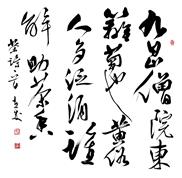 九日僧院東
籬菊也黄俗
人多泛酒誰
解助茶香